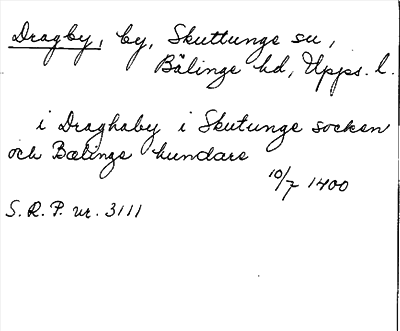 Dragby, by, Skuttunge sn,
Bälinge hd, Upps. l.
i Draghaby i Skutunge socken
och Bælings hundare
10/7 1400
S.R.P. nr. 3111